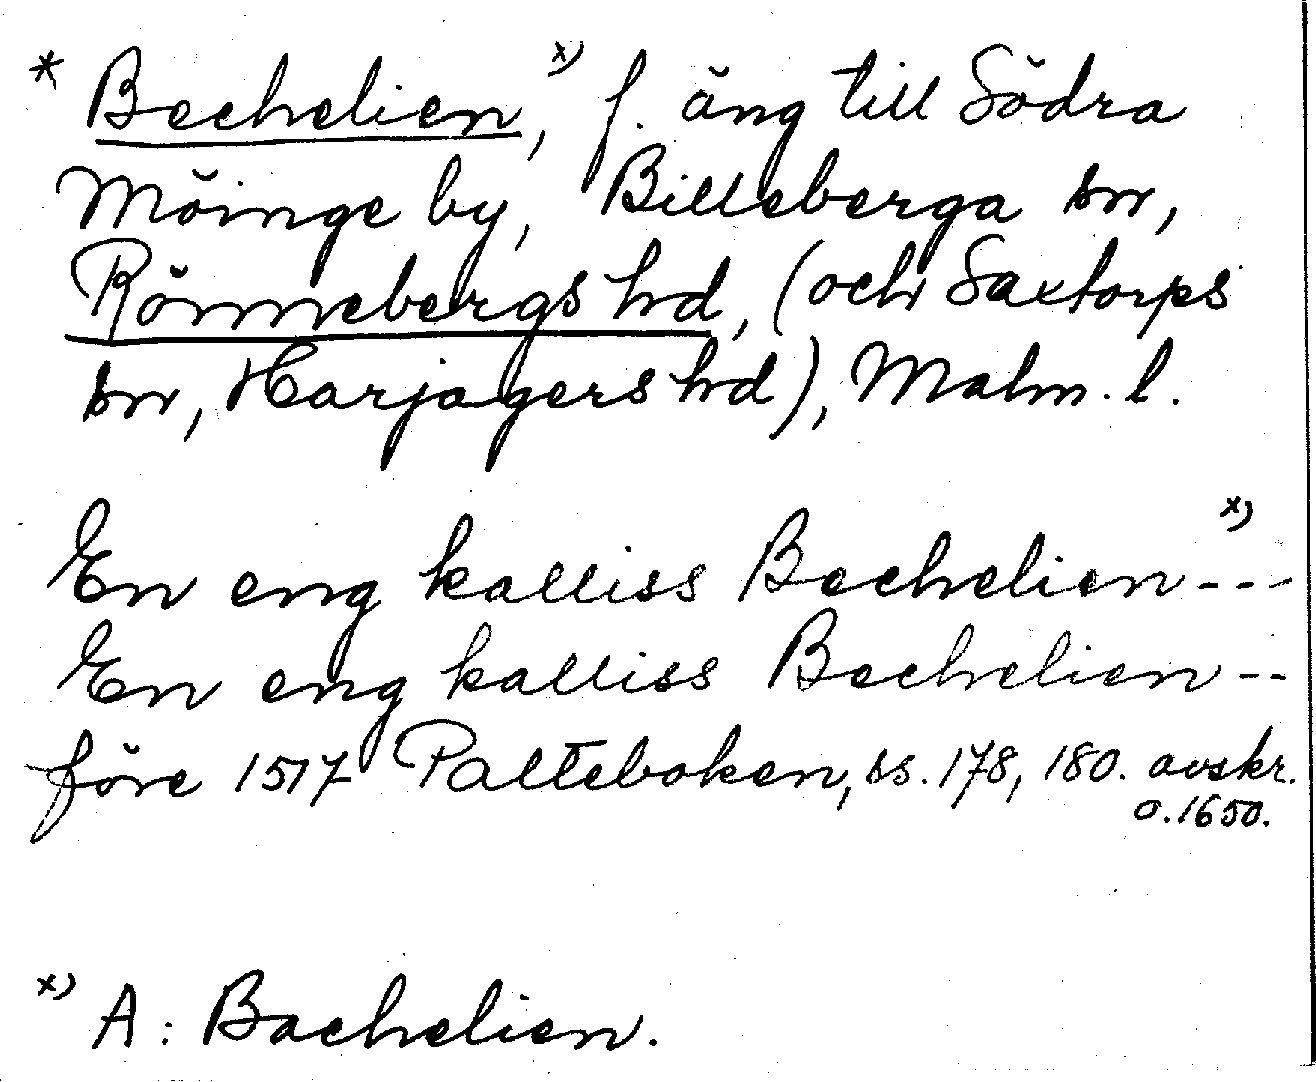 * Bechelien,ˣ⁾ f. äng till Södra
Möinge by, Billeberga sn,
Rönnebergs hd, (och Saxtorps
sn, Harjagers hd), Malm. l.
En eng kalliss Bechelienˣ⁾ - - -
En eng kalliss Bechelien - -
före 1517 Palteboken, ss. 178, 180. avskr.
o. 1650.
ˣ⁾ A: Bachelien.